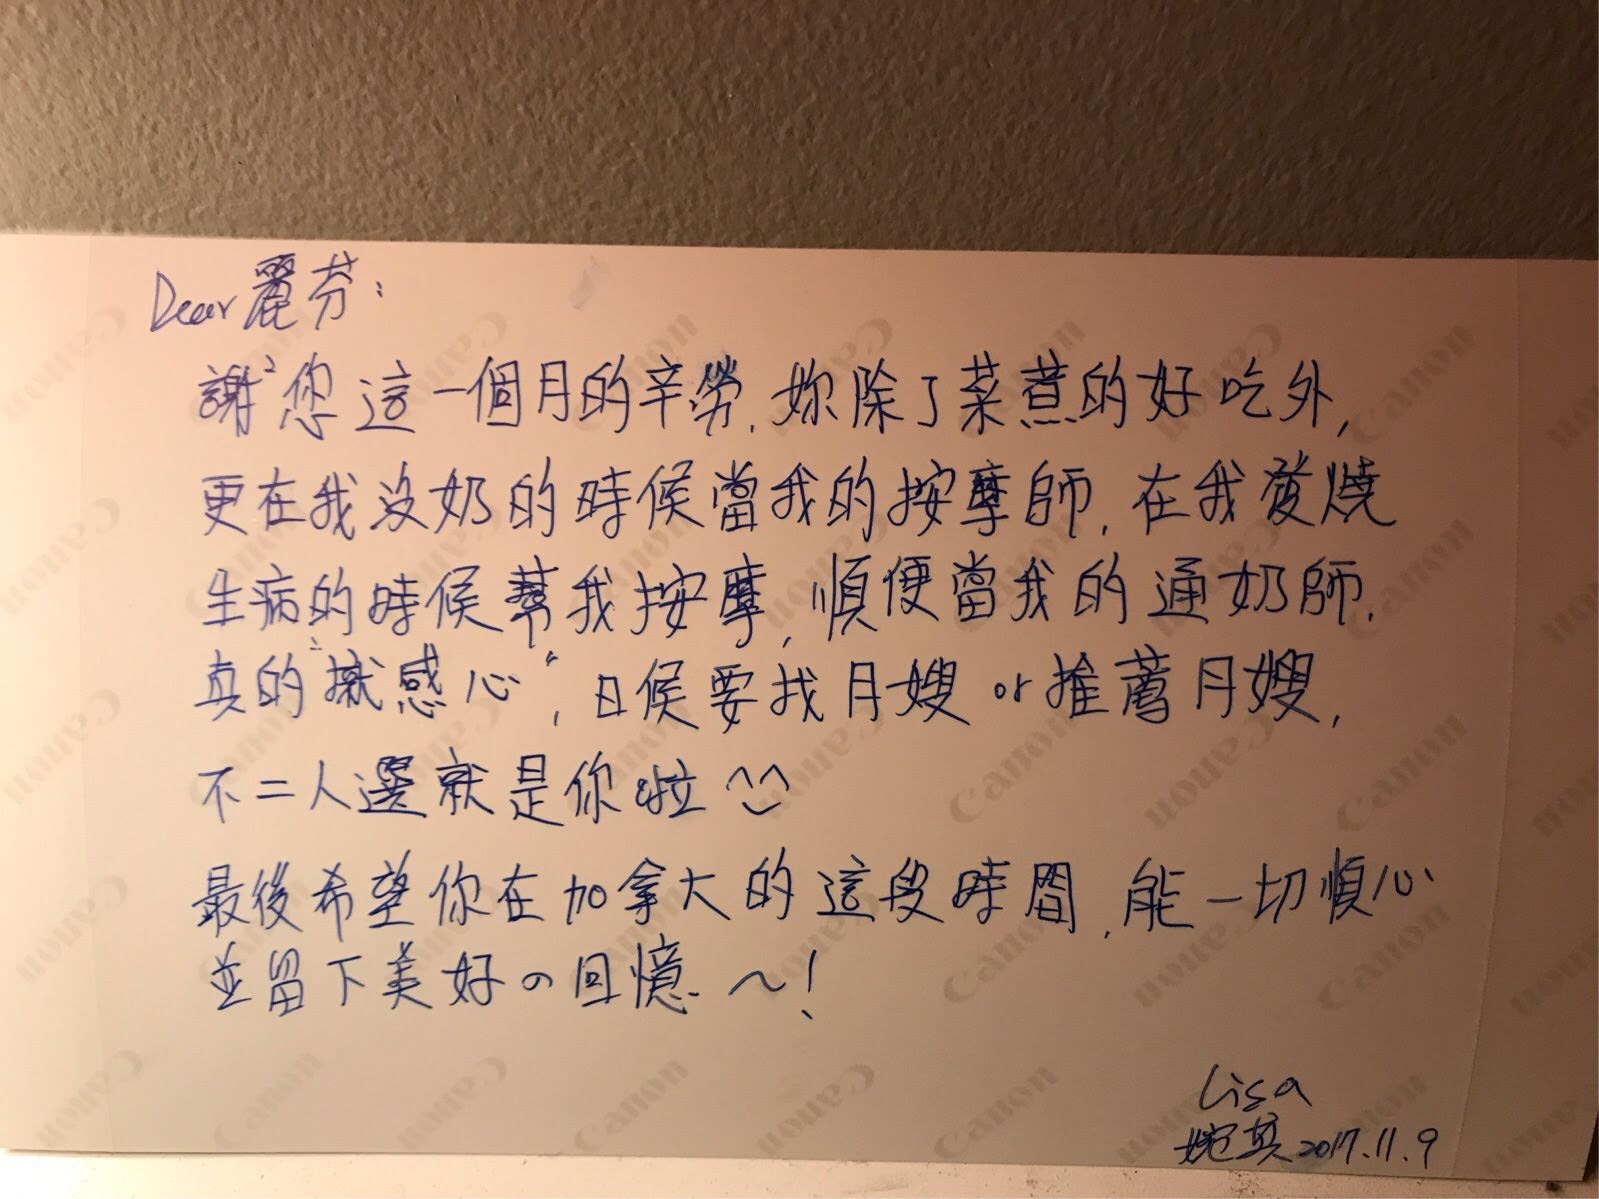 Dear 麗芬：
謝²您這一個月的辛勞.妳除了菜煮的好吃外,
更在我沒奶的時候當我的按摩師,在我發燒
生病的時候幫我按摩,順便當我的通奶師.
真的"揪感心",日候要找月嫂 or 推薦月嫂,
不二人選就是你啦 ^^
最後希望你在加拿大的這段時間,能一切順心
並留下美好の回憶～!
Lisa
婉真 2017.11.9
Canon